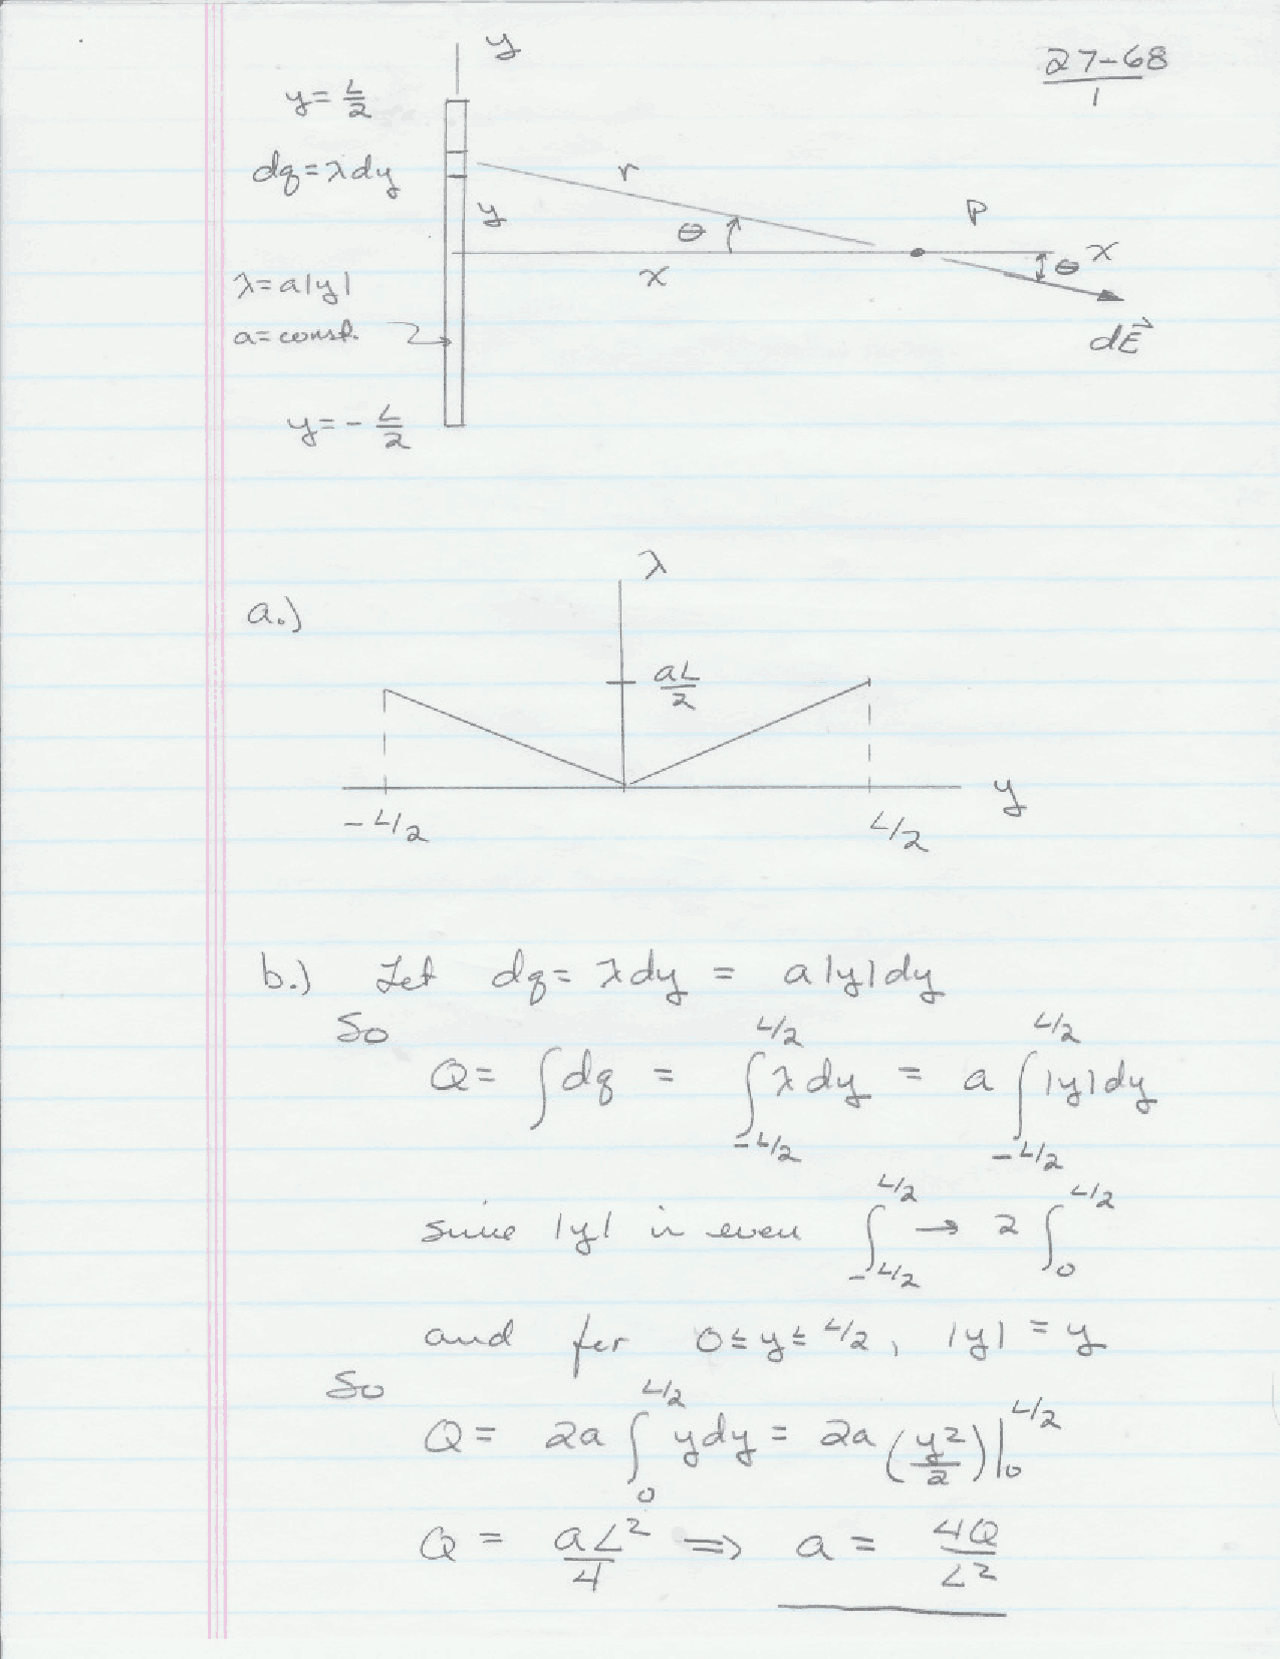 y
27-68
1
y = L/2
dq = λdy
r
y
θ
P
x
x
θ
λ = a|y|
a = const.
dE⃗
y = - L/2
λ
a.)
aL/2
y
-L/2
L/2
b.) Let dq = λdy = a|y|dy
So
Q = ∫dq = ∫_{-L/2}^{L/2} λdy = a ∫_{-L/2}^{L/2} |y|dy
since |y| is even ∫_{-L/2}^{L/2} → 2 ∫_0^{L/2}
and for 0 ≤ y ≤ L/2, |y| = y
So
Q = 2a ∫_0^{L/2} ydy = 2a (y²/2)|_0^{L/2}
Q = aL²/4 ⟹ a = 4Q/L²